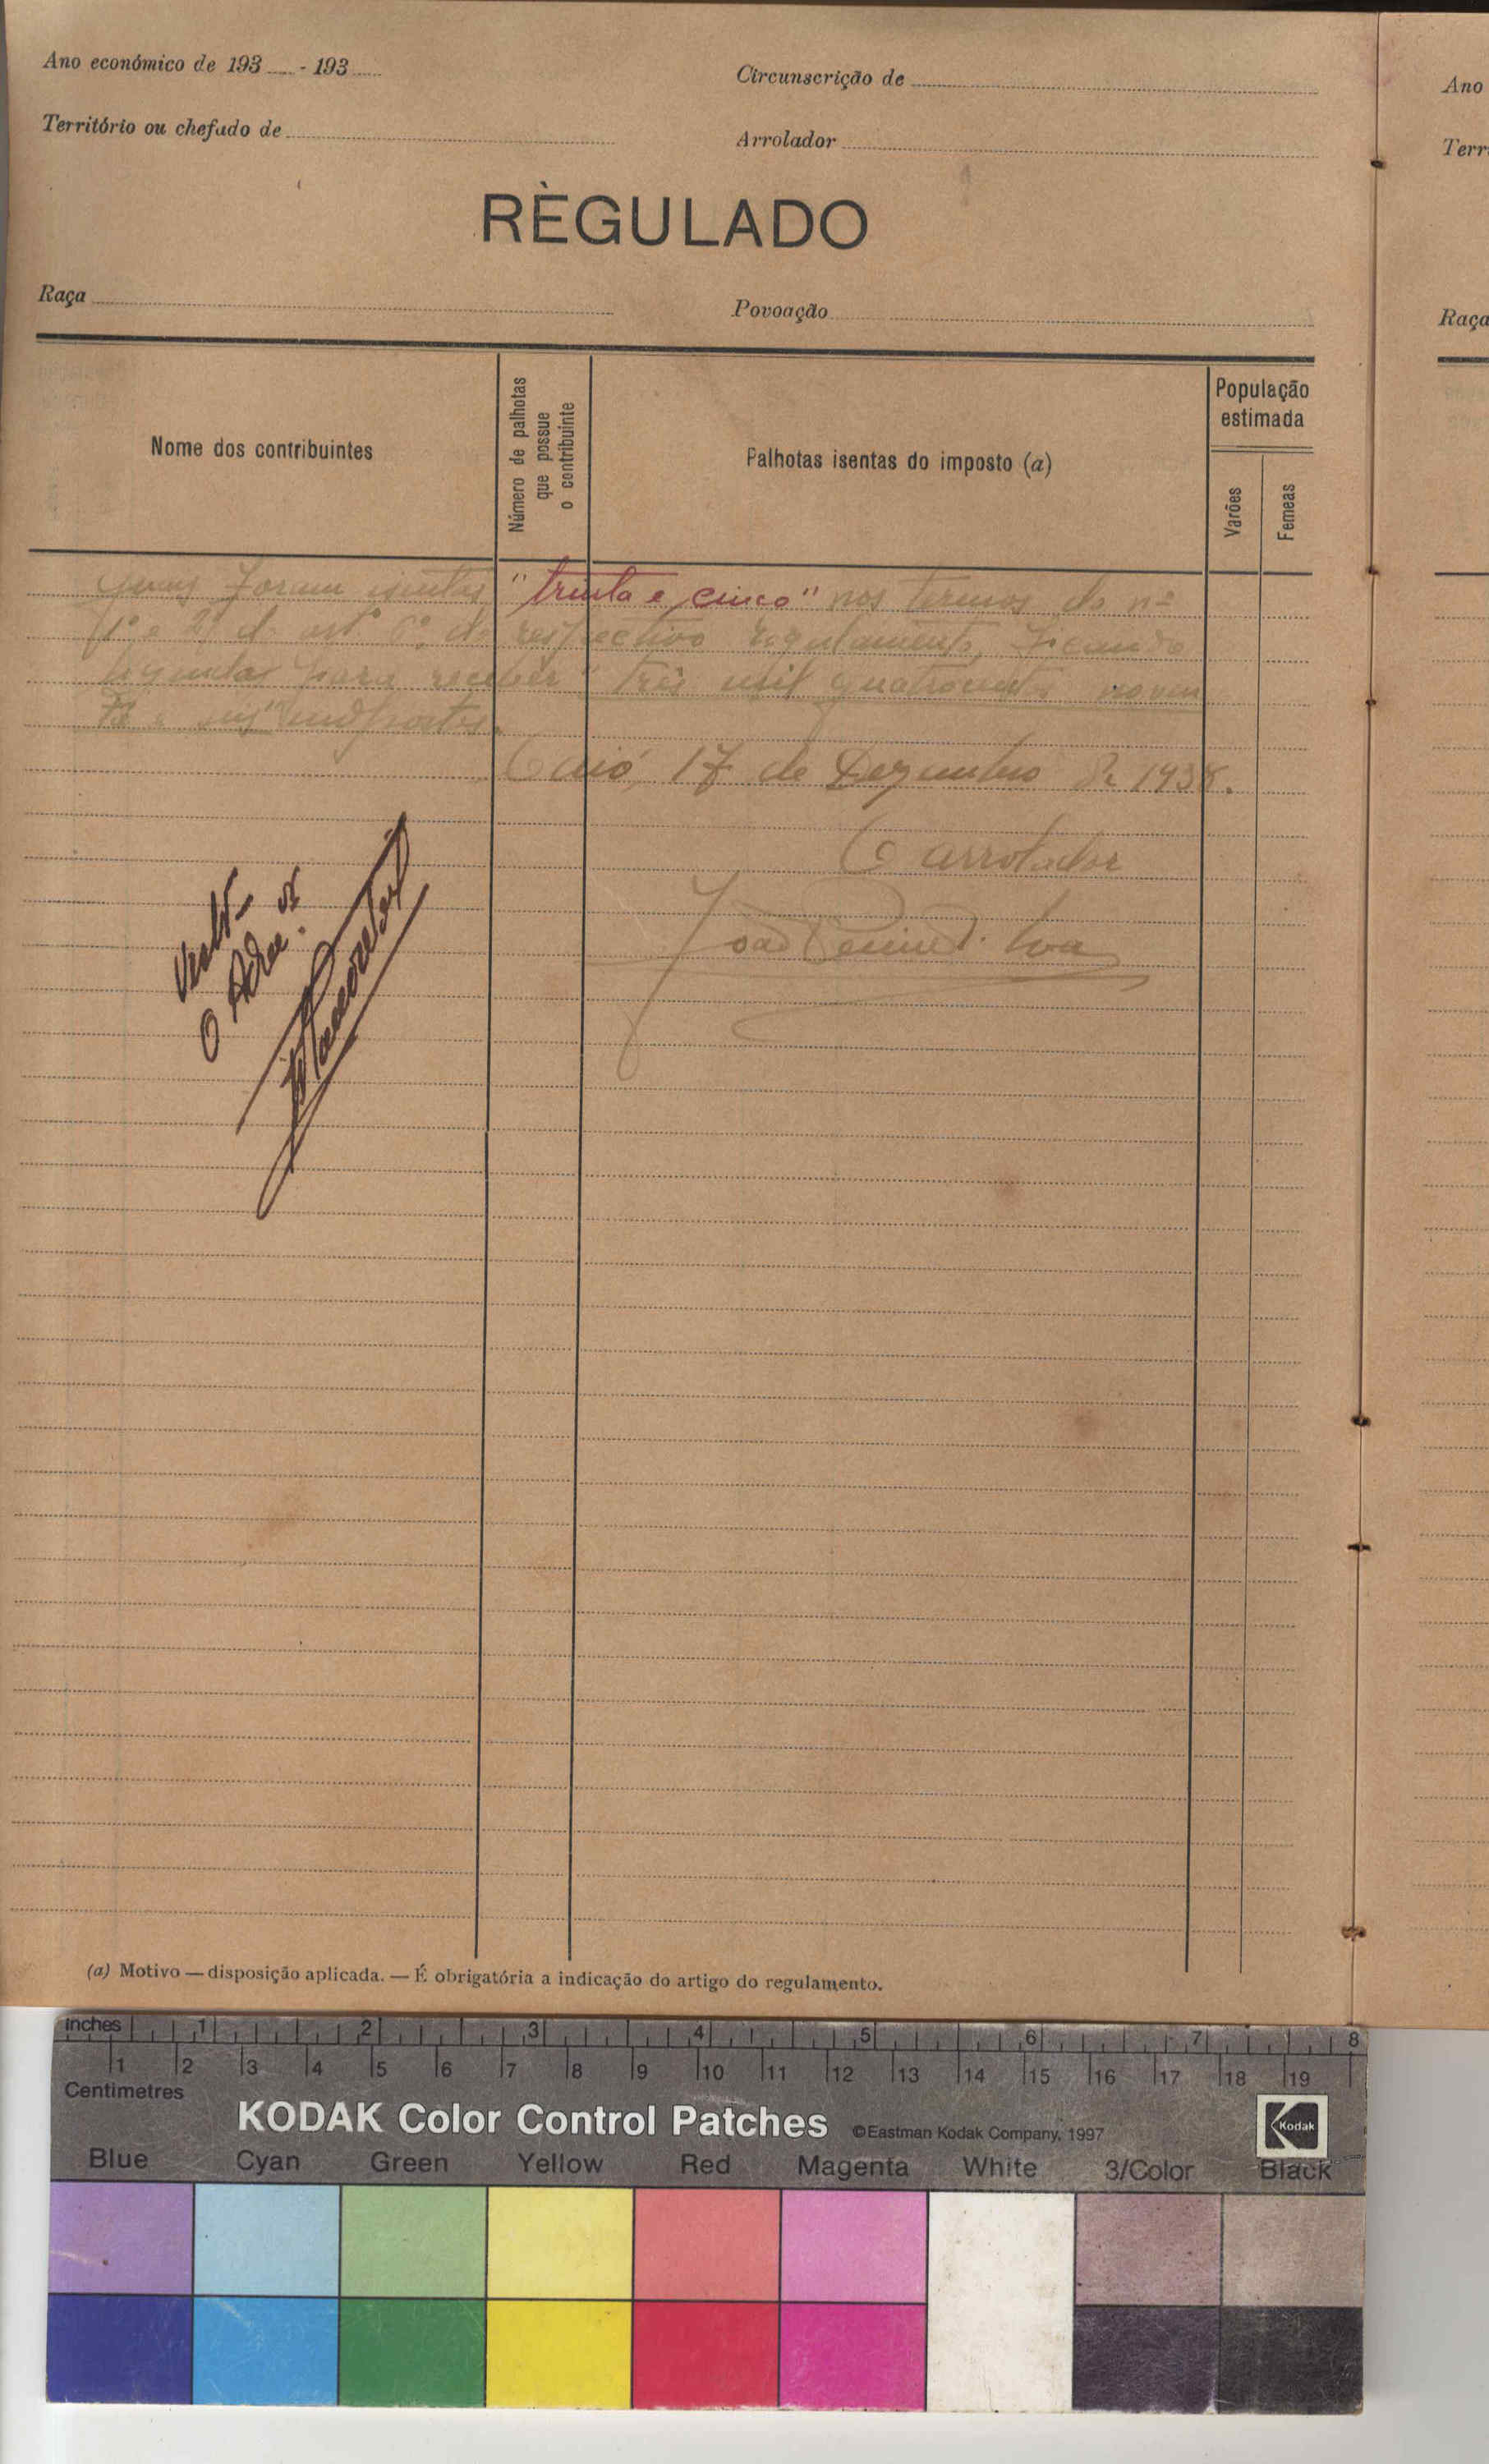 Ano económico de 193..... - 193.....
Circunscrição de
Território ou chefado de
Arrolador
RÈGULADO
Raça
Povoação
Nome dos contribuintes
Número de palhotas que possue o contribuinte
Palhotas isentas do imposto (a)
População estimada
Varões
Femeas
foram isentas "trinta e cinco" nos termos do nº
1º e 2º do artº 6º do respectivo regulamento, ficando
para receber "três mil quatrocentos noven
ta e seis" impostos.
Caió, 17 de Dezembro de 1938.
O arrolador
João
Visto
O Adm.
(a) Motivo — disposição aplicada. — É obrigatória a indicação do artigo do regulamento.
Ano
Terr
Raça
inches 1 2 3 4 5 6 7 8
1 2 3 4 5 6 7 8 9 10 11 12 13 14 15 16 17 18 19
Centimetres
KODAK Color Control Patches ©Eastman Kodak Company, 1997 Kodak
Blue Cyan Green Yellow Red Magenta White 3/Color Black